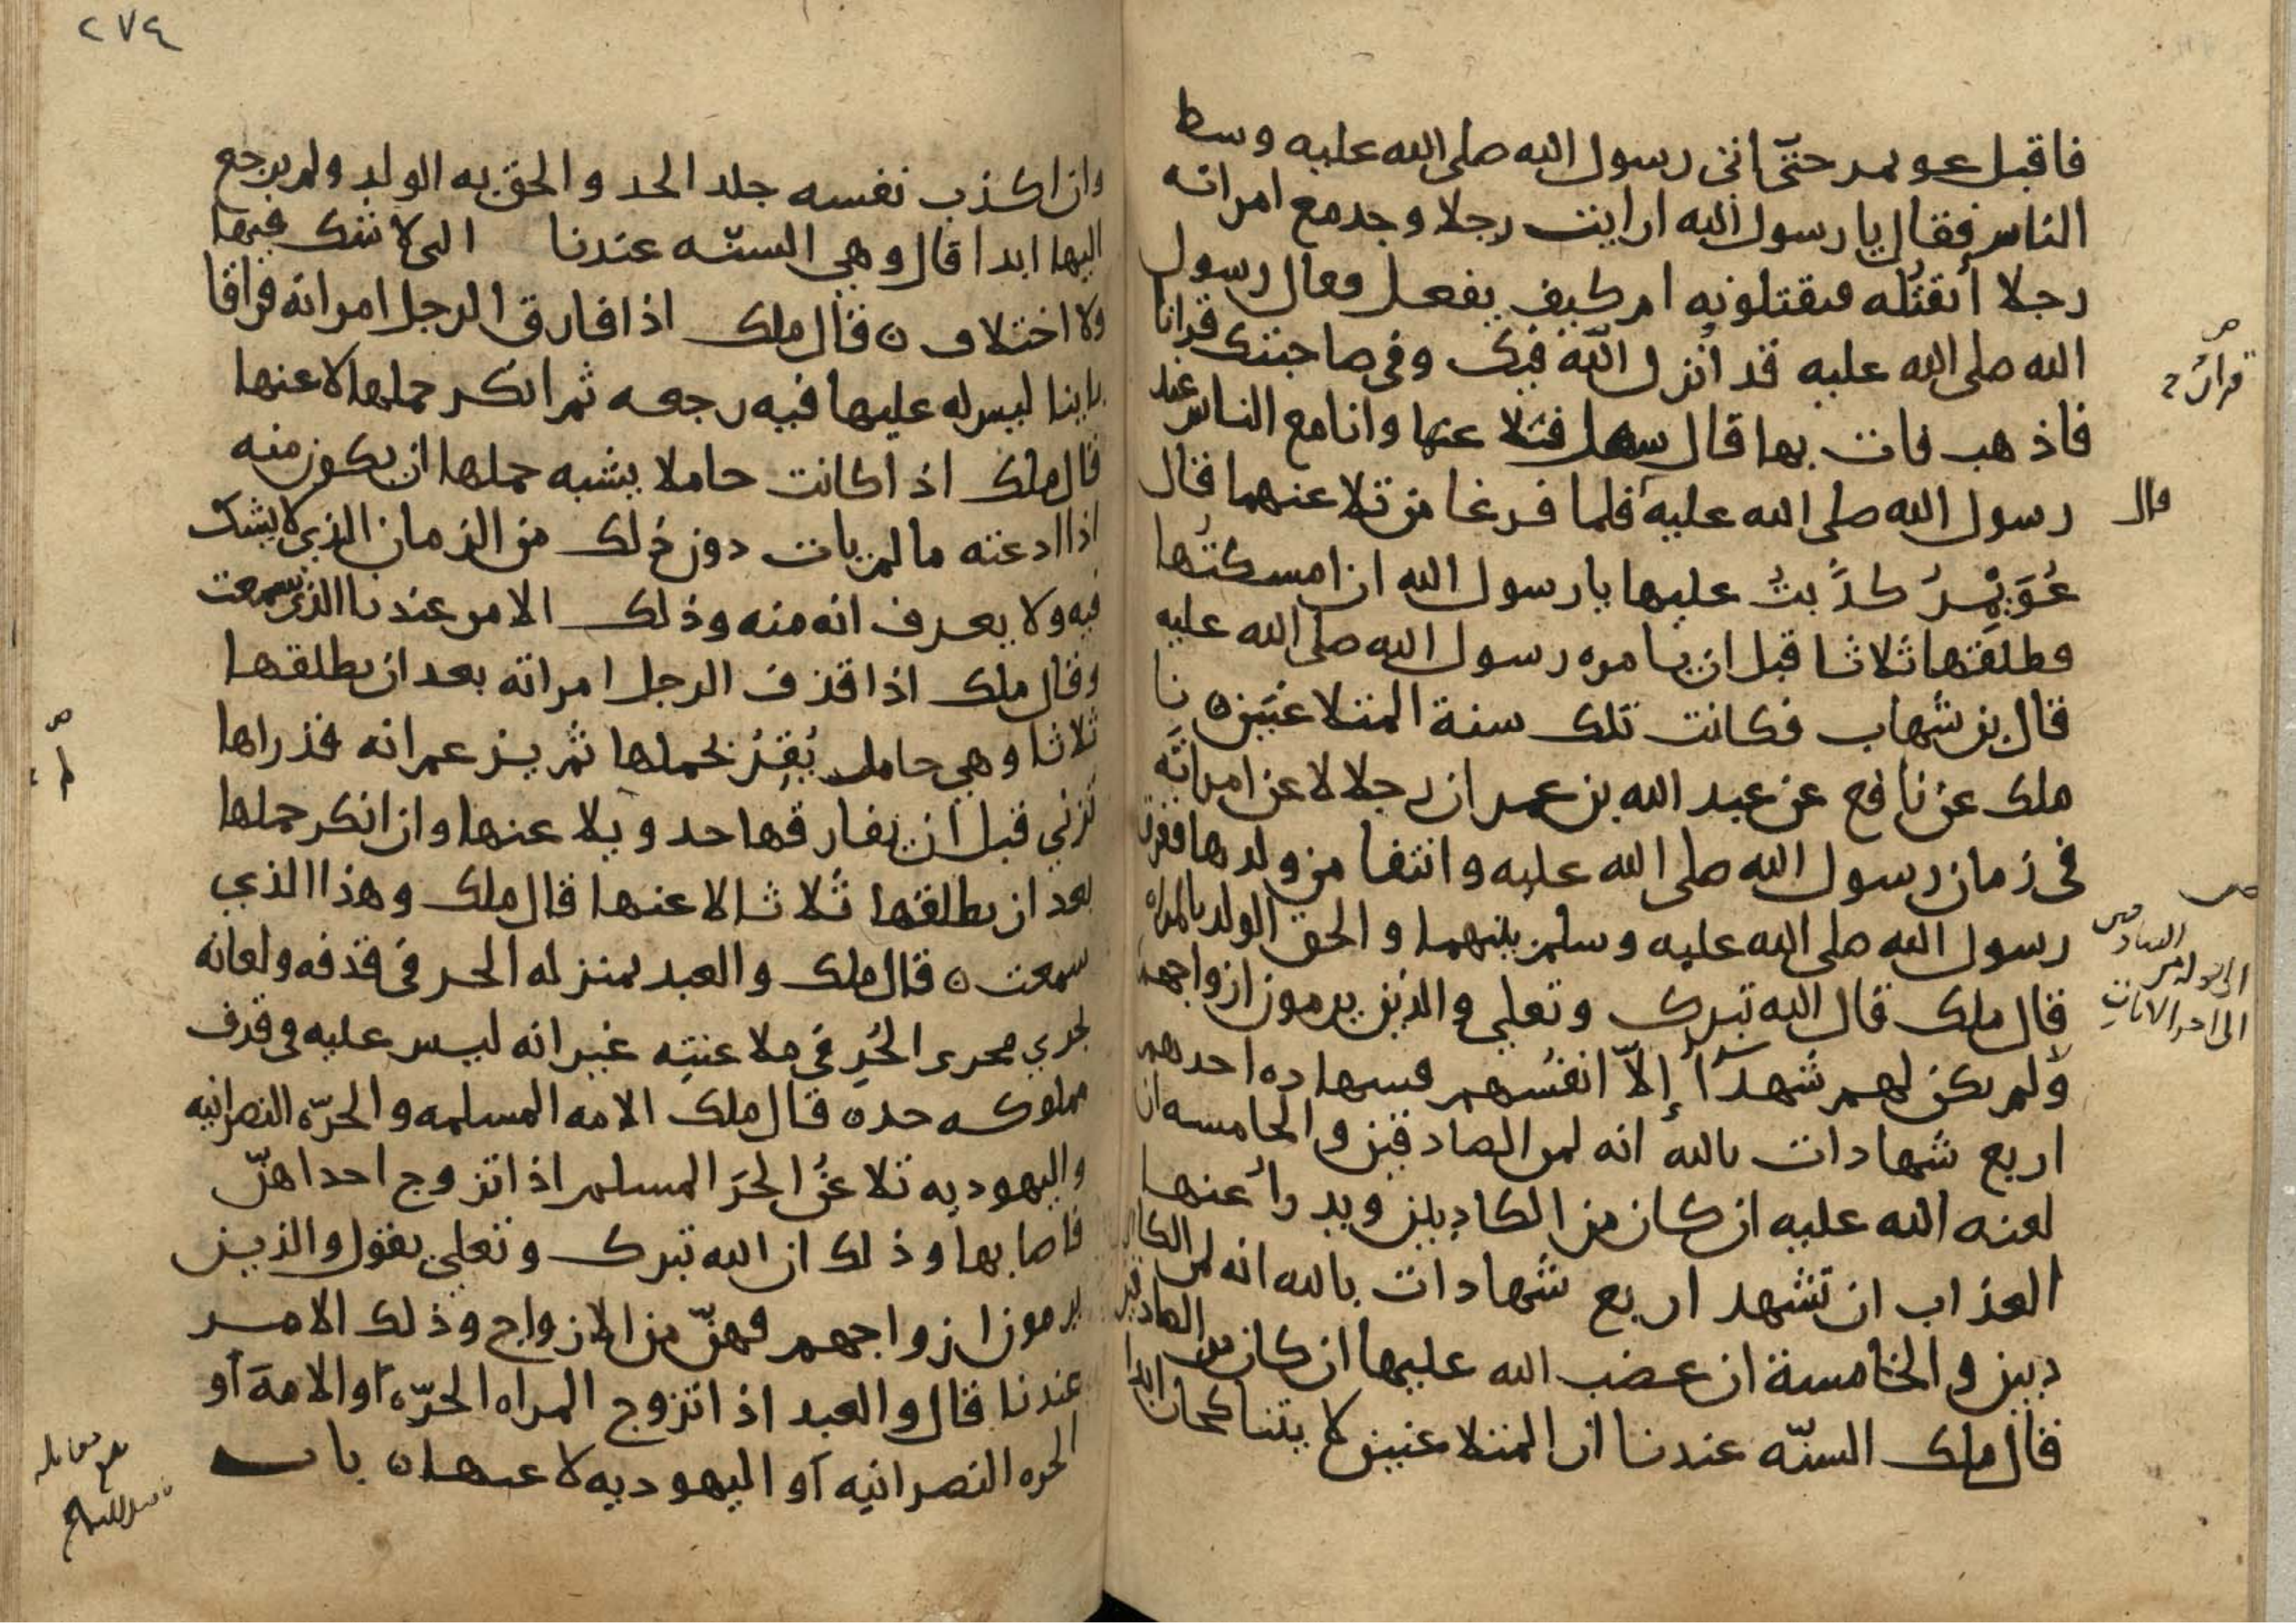 فاقبل عويمر حتى اتى رسول الله صلى الله عليه وسط
الناس فقال يا رسول الله ارايت رجلا وجد مع امراته
رجلا أيقتُله فيقتلونه ام كيف يفعل فقال رسول
الله صلى الله عليه قد أُنزل الله فيك وفي صاحبتك قرانا
فاذهب فات بها قال سهل فتلا عنها وانا مع الناس عند
رسول الله صلى الله عليه فلما فرغا من تلاعنهما قال
عُوَيْمِرُ كذَبتُ عليها يا رسول الله ان امسكتُها
فطلقها ثلاثا قبل ان يامره رسول الله صلى الله عليه
قال بن شهاب فكانت تلك سنة المتلاعنَين ٥ نا
ملك عن نافع عن عبد الله بن عمر ان رجلا لاعن امراتَه
في زمان رسول الله صلى الله عليه وانتفا من ولدها ففرق
رسول الله صلى الله عليه وسلم بينهما والحق الولد بالمراه
قال ملك قال الله تبرك وتعلى والذين يرمون ازواجهم
ولم يكن لهم شهدآُ إلاّ انفسُهم فشهاده احدهم
اربع شهادات بالله انه لمن الصادقين والخامسه ان
لعنه الله عليه ان كان من الكاذبين ويدرأ عنها
العذاب ان تشهد اربع شهادات بالله انه لمن الكا
ذبين والخامسة ان غضب الله عليها ان كان من الصادقين
قال ملك السنّه عندنا ان المتلاعنين لا يتناكحان ابدا
قرانٌ
قال
٢٧٤
وان اكذب نفسه جلد الحد والحق به الولد ولم يرجع
اليها ابدا قال وهي السنّه عندنا التي لا شك فيها
ولا اختلاف ٥ قال ملك اذا فارق الرجل امراته فراقا
باينا ليس له عليها فيه رجعه ثم انكر حملها لاعنها
قال ملك اذا كانت حاملا يشبه حملها ان يكون منه
اذا ادعته ما لم يات دون ذلك من الزمان الذي لا يشك
فيه ولا يعرف انه منه وذلك الامر عندنا الذي سمعت
وقال ملك اذا قذف الرجل امراته بعد ان يطلقها
ثلاثا وهي حامل يُقِرُّ بحملها ثم يزعم انه قد راها
تزني قبل ان يفارقها حد ويلاعنها وان انكر حملها
بعد ان يطلقها ثلاثا لاعنها قال ملك وهذا الذي
سمعت ٥ قال ملك والعبد بمنزله الحر في قذفه ولعانه
يجري مجرى الحُرِ في ملاعنتِه غير انه ليس عليه في قذف
مملوكه حد ٥ قال ملك الامه المسلمه والحرّه النصرانيه
واليهوديه تلاعنُ الحرَ المسلم اذا تزوج احداهنّ
فاصابها وذلك ان الله تبرك وتعلى يقول والذين
يرمون ازواجهم فهنّ من الازواج وذلك الامر
عندنا قال والعبد اذا تزوج المراه الحرّه أو الامة أو
الحره النصرانيه أو اليهوديه لاعنها ٥ باب